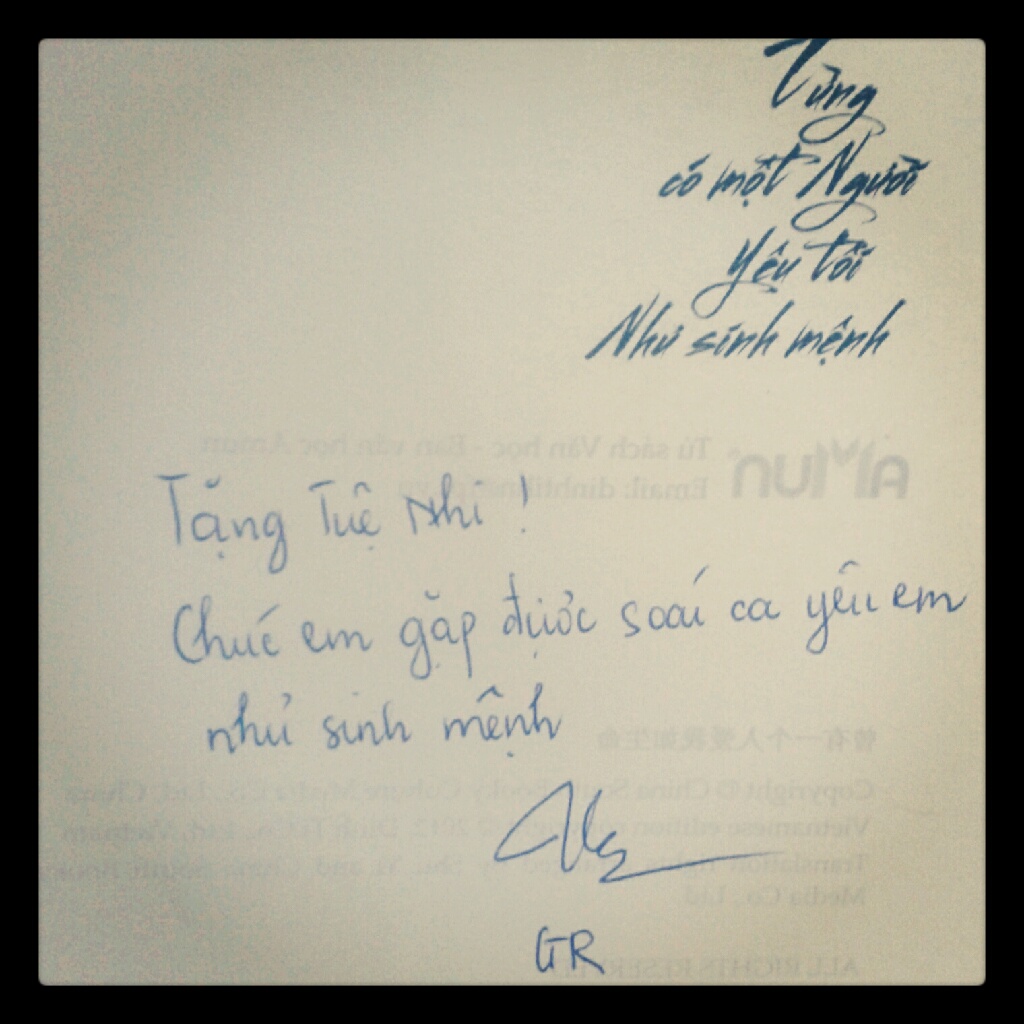 Từng
có một Người
Yêu tôi
Như sinh mệnh
Tủ sách Văn học - Ban văn học Amun
AMUN
Email:
Tặng Tuệ Nhi !
Chúc em gặp được soái ca yêu em
như sinh mệnh
曾有一个人爱我如生命
Copyright © China South Booky Culture Media Co., Ltd, China
Vietnamese edition copyright © 2012, Dinh Ti Co., Ltd, Vietnam
Translation rights arranged by Shu Yi and China South Book
Media Co., Ltd.
GR
ALL RIGHTS RESERVED